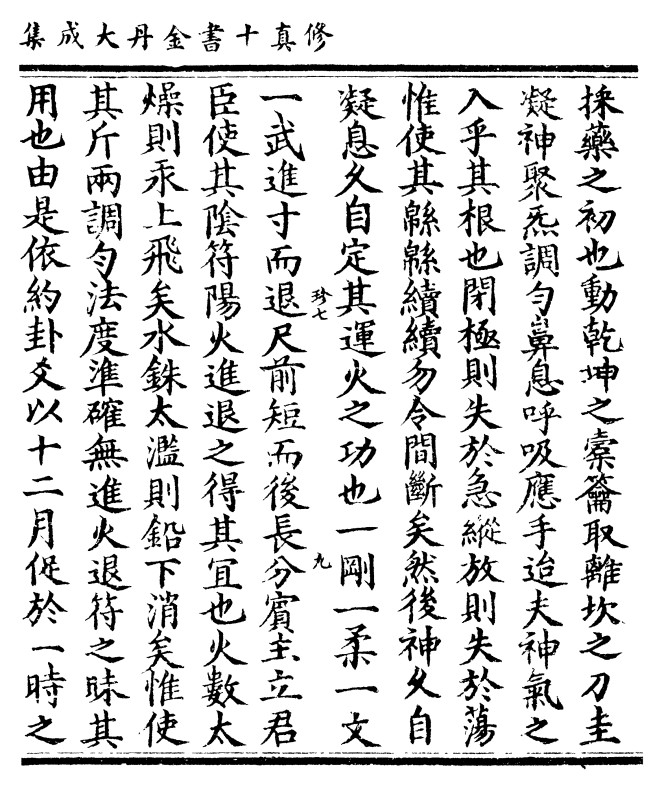 修真十書金丹大成集
採藥之初也動乾坤之橐籥取離坎之刀圭
凝神聚炁調勻鼻息呼吸應手迨夫神氣之
入乎其根也閉極則失於急縱放則失於蕩
惟使其緜緜續續勿令間斷矣然後神久自
凝息久自定其運火之功也一剛一柔一文
珍七
九
一武進寸而退尺前短而後長分賓主立君
臣使其陰符陽火進退之得其宜也火數太
燥則汞上飛矣水銖太濫則鉛下消矣惟使
其斤兩調勻法度準確無進火退符之昧其
用也由是依約卦爻以十二月促於一時之